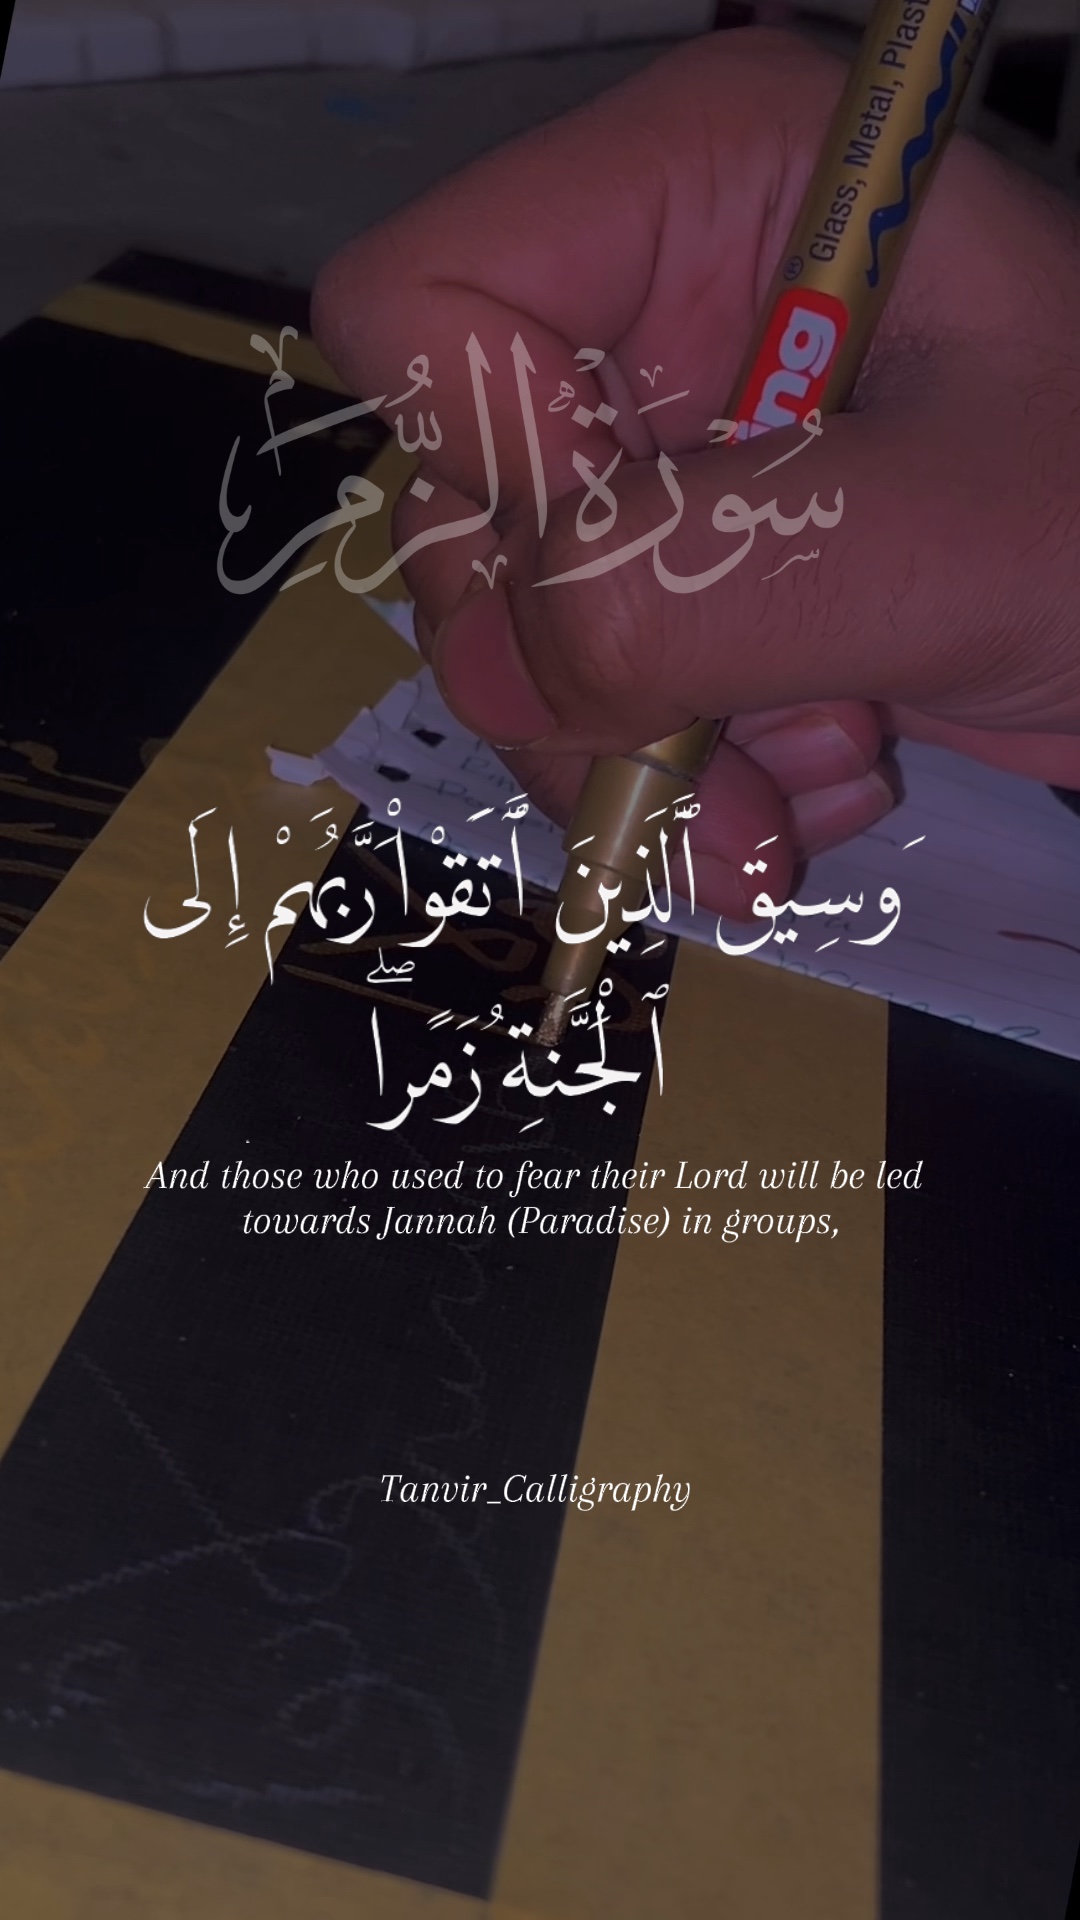 Glass, Metal, Plast
®
ing
سُوۡرَةُ الزُّمَرِ
وَسِيقَ ٱلَّذِينَ ٱتَّقَوْا۟ رَبَّهُمْ إِلَى
ٱلْجَنَّةِ زُمَرًا ۖ
And those who used to fear their Lord will be led
towards Jannah (Paradise) in groups,
Tanvir_Calligraphy